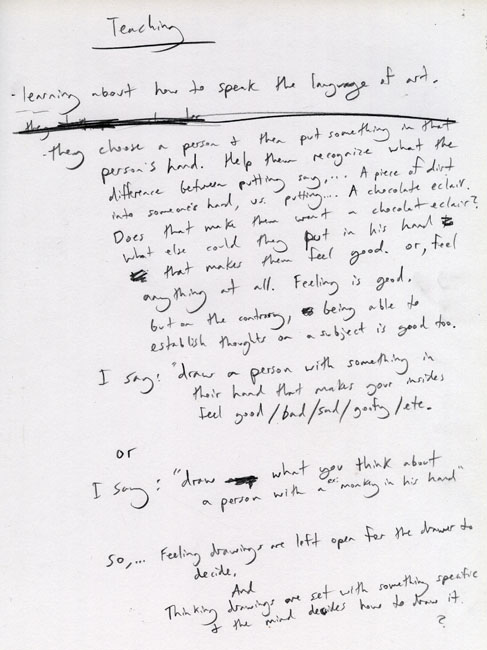 Teaching
- learning about how to speak the language of art.
- they choose a person & then put something in that
person's hand. Help them recognize what the
difference between putting say,... A piece of dirt
into someone's hand, vs. putting... A chocolate eclair.
Does that make them want a chocolat eclair?
what else could they put in his hand
that makes them feel good. or, feel
anything at all. Feeling is good,
but on the contrary, being able to
establish thoughts on a subject is good too.
I say: "draw a person with something in
their hand that makes your insides
feel good/bad/sad/goofy/etc.
or
I say: "draw what you think about
a person with a monkey in his hand"
So,... Feeling drawings are left open for the drawer to
decide,
And
Thinking drawings are set with something specific
& the mind decides how to draw it.
?